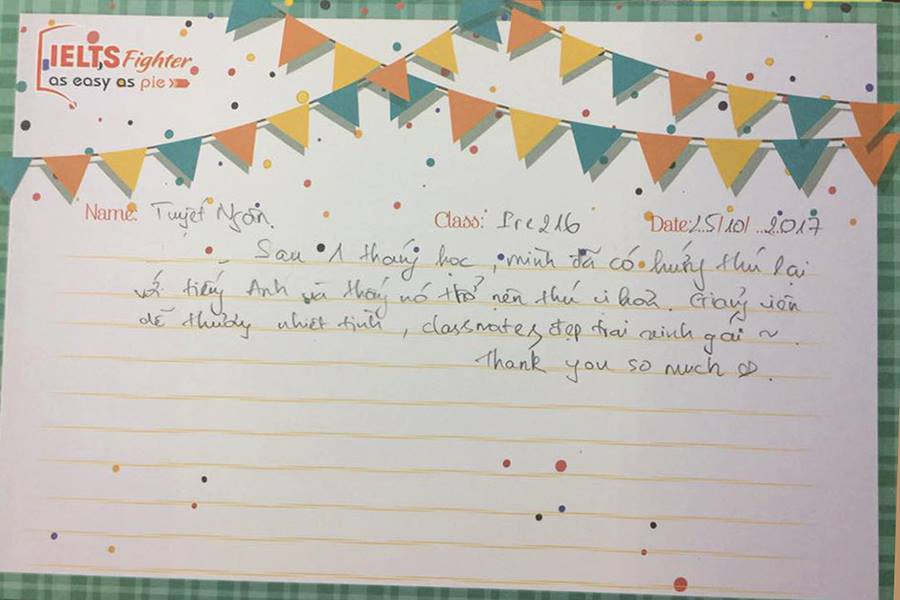 IELTS Fighter
as easy as pie
Name: Tuyết Ngân. Class: Pre216 Date: 25/10/...2017
- Sau 1 tháng học, mình đã có hứng thú lại
với tiếng Anh và thấy nó trở nên thú vị hơn. Giảng viên
dễ thương nhiệt tình, classmates đẹp trai xinh gái ~.
Thank you so much ♡.